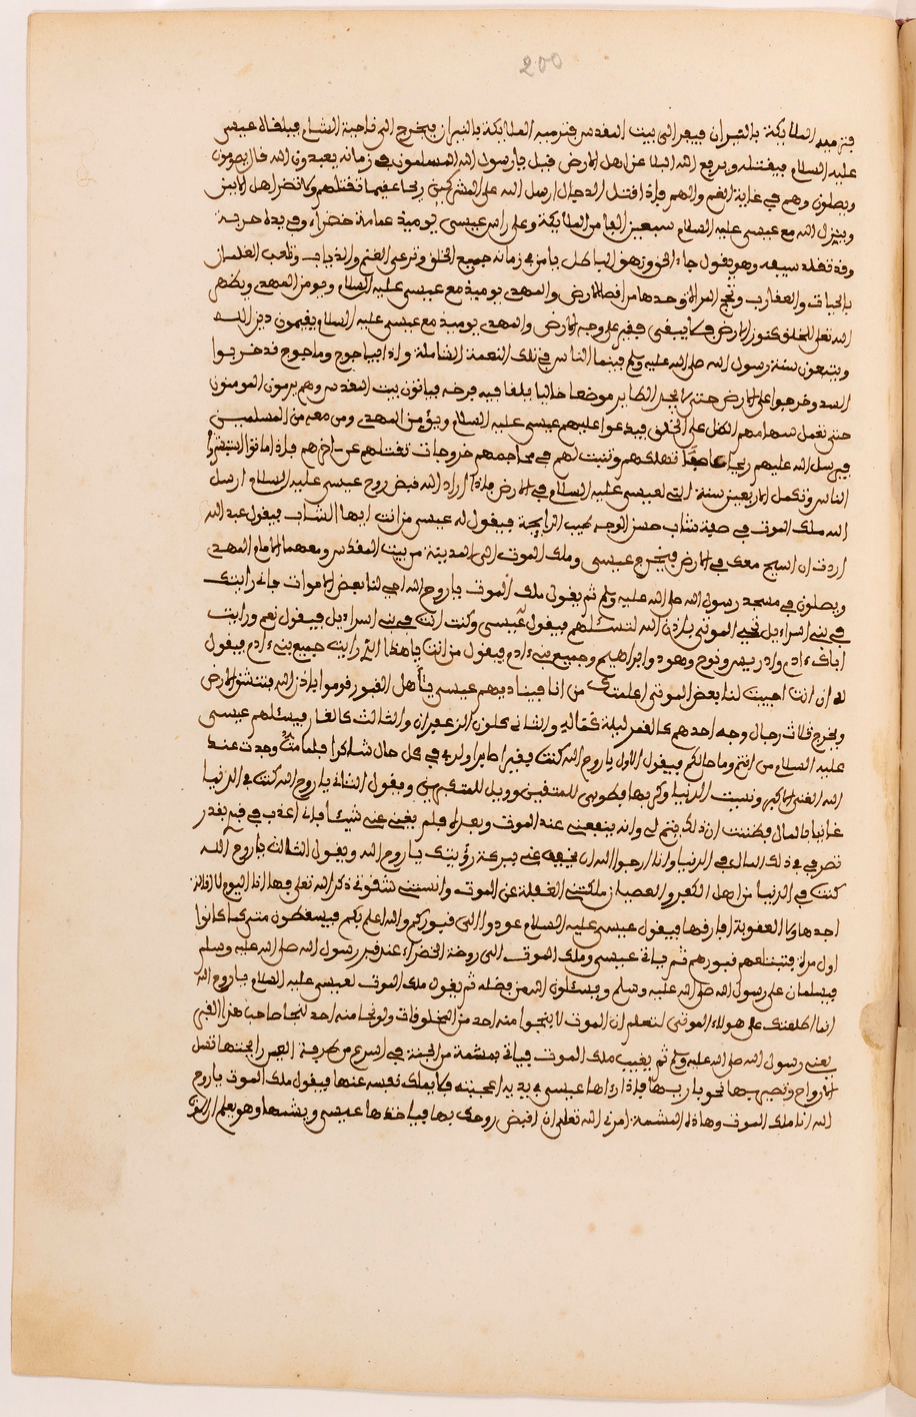 200
فترميه الملايكة بالنيران فيفر الى بيت المقدس فترميه الملايكة بالنيران فيخرج الى ناحية الشام فيلقاه عيسى
عليه السلام فيقتله ويرفع الله البلا عن اهل الارض قيل يارسول الله المسلمون في زمانه يعبدون الله قال يصومون
ويصلون وهم في غاية الغم والهم فإذا قتل الدجال ارسل الله على المشركين ريحا عقيما تقتلهم ولا تضر اهل
وينزل الله مع عيسى عليه السلام سبعين الفا من الملايكة وعلى راس عيسى يوميذ عمامة خضراء وفي يده حربة
وقد تقلد سيفه وهو يقول جاء الحق وزهق الباطل يامن في زمانه جميع الخلق وترعى الغنم والذياب وتلعب الغلمان
بالحيات والعقارب وتحج المراة وحدها من اقصا الارض والمهدي يوميذ مع عيسى عليه السلام ويومن المهدي ويظهر
الله تعلى للخلق كنوز الارض فلا يبقى فقير على وجه الارض والمهدي يوميذ مع عيسى عليه السلام يقيمون دين الله
ويتبعون سنة رسول الله صلى الله عليه وسلم فبينما الناس في تلك النعمة الشاملة واذا بياجوج وماجوج قد خربوا
السد وخرجوا على الارض حتى لا يجد الطاير موضعا خاليا يلقا فيه فرخه فياتون بيت المقدس وهم يرمون المومنون
حتى تعمل سهامهم الكل على الخلق فيدعوا عليهم عيسى عليه السلام ويؤمن المهدي ومن معه من المسلمين
فيرسل الله عليهم ريحا عاصفا تهلكهم وتنبت لهم في محاجمهم خروجات تقتلهم عن اخرهم فإذا ماتوا
الناس وتكمل الاربعين سنة التي لعيسى عليه السلام في الارض فاذا اراد الله قبض روح عيسى عليه السلام ارسل
الله ملك الموت في صفة شاب حسن الوجه طيب الرايحة فيقول له عيسى من انت ايها الشاب فيقول عبد الله
اردت ان اسيح معك في الارض فيخرج عيسى وملك الموت الى المدينة من بيت المقدس ومعهما الامام المهدي
ويصلون في مسجد رسول الله صلى الله عليه وسلم ثم يقول ملك الموت ياروح الله احي لنا بعض الاموات فاني رايتك
في بني اسراءيل تحيي الموتى بإذن الله لتسئلهم فيقول عيسى وكنت انت في بني اسراءيل فيقول نعم ورايت
اباك ءادم وادريس ونوح وهود وابراهيم وجميع بني ءادم فيقول من انت ياهذا الذي رايت جميع بني ءادم فيقول
له ان انت احييت لنا بعض الموتى اعلمتك من انا فيناديهم عيسى يأهل القبور قوموا باذن الله فتنشق الارض
ويخرج ثلاث رجال وجه احدهم كالقمر ليلة والثاني كلون الزعفران والثالث كالقار فيسئلهم عيسى
عليه السلام من انتم وما حالكم فيقول الاول ياروح الله كنت فقيرا صابرا ولربي في كل حال شاكرا فلما مت وجدت عند
الله الغنى الاكبر ونسيت الدنيا وكربها فطوبى للمتقين وويل للمتكبرين ويقول الثاني ياروح الله كنت في الدنيا
غانيا بالمال فظننت ان ذلك يتم لي وانه ينفعني عند الموت وبعده فلم يغني عني شيئا فانا اعذب في قبري بقدر
تصرفي في ذلك المال في الدنيا وانا ارجوا الله ان يخفف عني ببركة رؤيتك ياروح الله ويقول الثالث ياروح الله
كنت في الدنيا من اهل الكفر والعصيان ملكتني الغفلة عن الموت وانستني شقوتي ذكر الله تعلى فها انا اليوم
اجدها ولا العقوبة افارقها فيقول عيسى عليه السلام عودوا الى قبوركم والله اعلم بكم فيسقطون متى كما كانوا
اول مرة فتبتلعهم قبورهم ثم ياتي عيسى وملك الموت الى روضة الخضراء عند قبر رسول الله صلى الله عليه وسلم
فيسلمان على رسول الله صلى الله عليه وسلم ويسئلون الله من فضله ثم يقول ملك الموت لعيسى عليه السلام ياروح الله
انما اطلعتك على هولاء الموتى لتعلم ان الموت لا ينجوا منه احد من المخلوقات ولو نجا منه احد لنجا صاحب هذا القبر
يعني رسول الله صلى الله عليه وسلم ثم يغيب ملك الموت فياتي بمشمة من الجنة في اسرع من طرفة العين رايحتها تسل
الارواح وتصير بها نحو باريها فإذا رءاها عيسى في يديه اعجبته فلا يملك نفسه عنها فيقول ملك الموت ياروح
الله انا ملك الموت وهاذه المشمة امرني الله تعلى ان اقبض روحك بها فياخذها عيسى ويشمها وهو يعلم